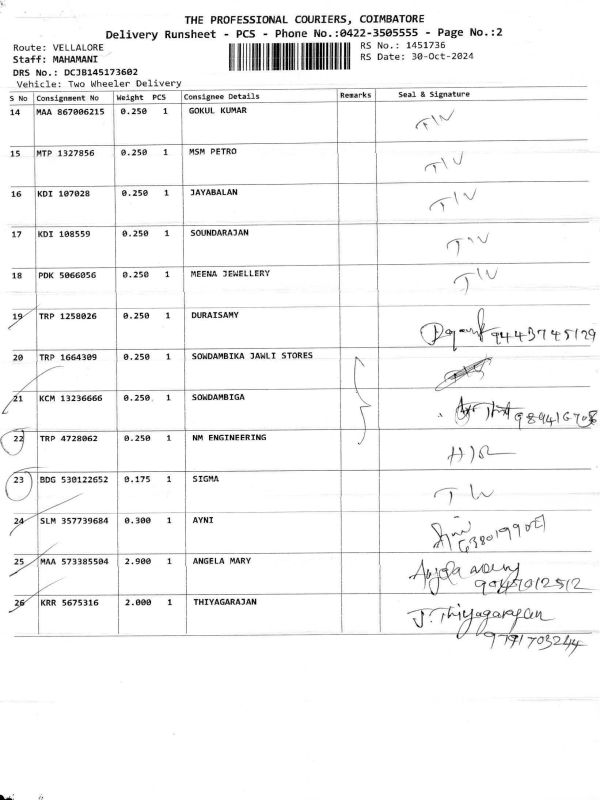 THE PROFESSIONAL COURIERS, COIMBATORE
Delivery Runsheet - PCS - Phone No.:0422-3505555 - Page No.:2
Route: VELLALORE RS No.: 1451736
Staff: MAHAMANI RS Date: 30-Oct-2024
DRS No.: DCJB145173602
Vehicle: Two Wheeler Delivery
S No Consignment No Weight PCS Consignee Details Remarks Seal & Signature
14 MAA 867006215 0.250 1 GOKUL KUMAR
15 MTP 1327856 0.250 1 MSM PETRO
16 KDI 107028 0.250 1 JAYABALAN
17 KDI 108559 0.250 1 SOUNDARAJAN
18 PDK 5066056 0.250 1 MEENA JEWELLERY
19 TRP 1258026 0.250 1 DURAISAMY 9443745129
20 TRP 1664309 0.250 1 SOWDAMBIKA JAWLI STORES
21 KCM 13236666 0.250 1 SOWDAMBIGA
22 TRP 4728062 0.250 1 NM ENGINEERING
23 BDG 530122652 0.175 1 SIGMA
24 SLM 357739684 0.300 1 AYNI
25 MAA 573385504 2.900 1 ANGELA MARY Angela
26 KRR 5675316 2.000 1 THIYAGARAJAN J. Thiyagarayan
9791703244